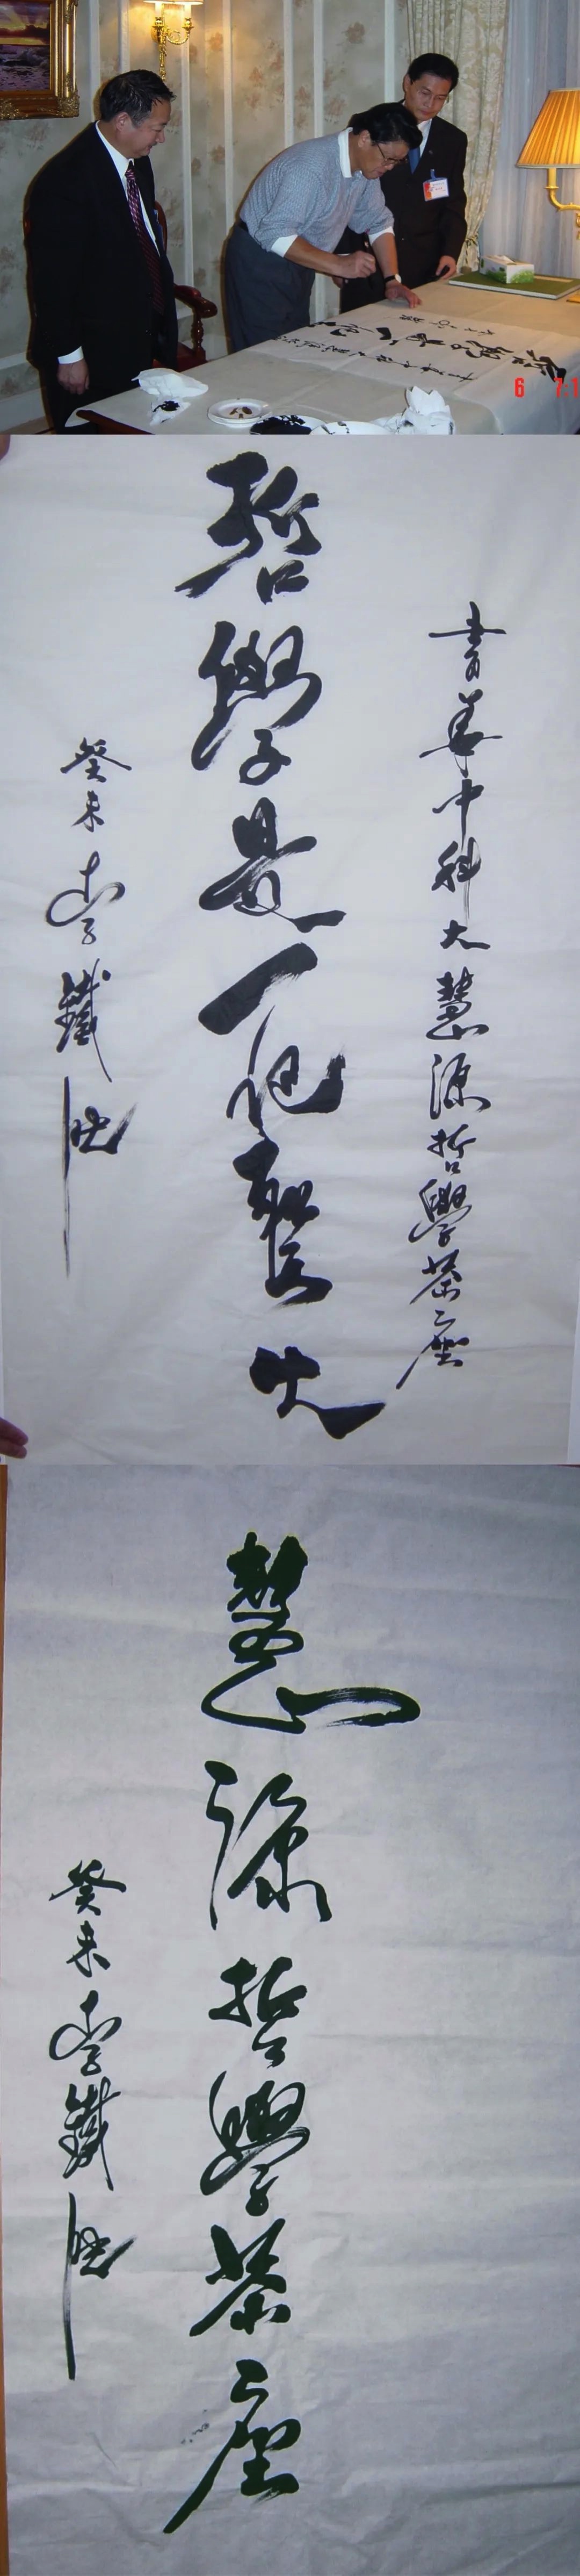 6 7:1
書華中科大慧源哲學茶座
哲學是一
癸未 李鐵映
慧源哲學茶座
癸未 李鐵映